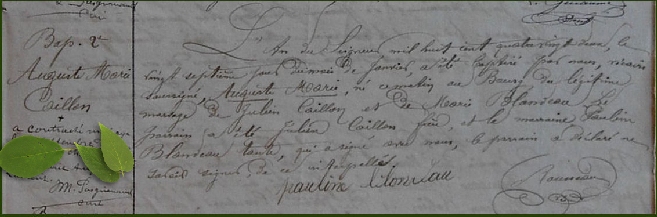 Bap. 2e
Auguste Marie
Caillon
+
a contracté mariage
L'An du Seigneur mil huit cent quatre vingt deux, le
vingt septième jour du mois de Janvier, a été baptisé par nous, vicaire
soussigné, Auguste Marie, né ce matin au Bourg du légitime
mariage de Julien Caillon et de Marie Blandeau. Le
parrain a été Julien Caillon père, et la marraine Pauline
Blandeau tante, qui a signé avec nous, le parrain a déclaré ne
savoir signer de ce interpellé.
pauline blandeau